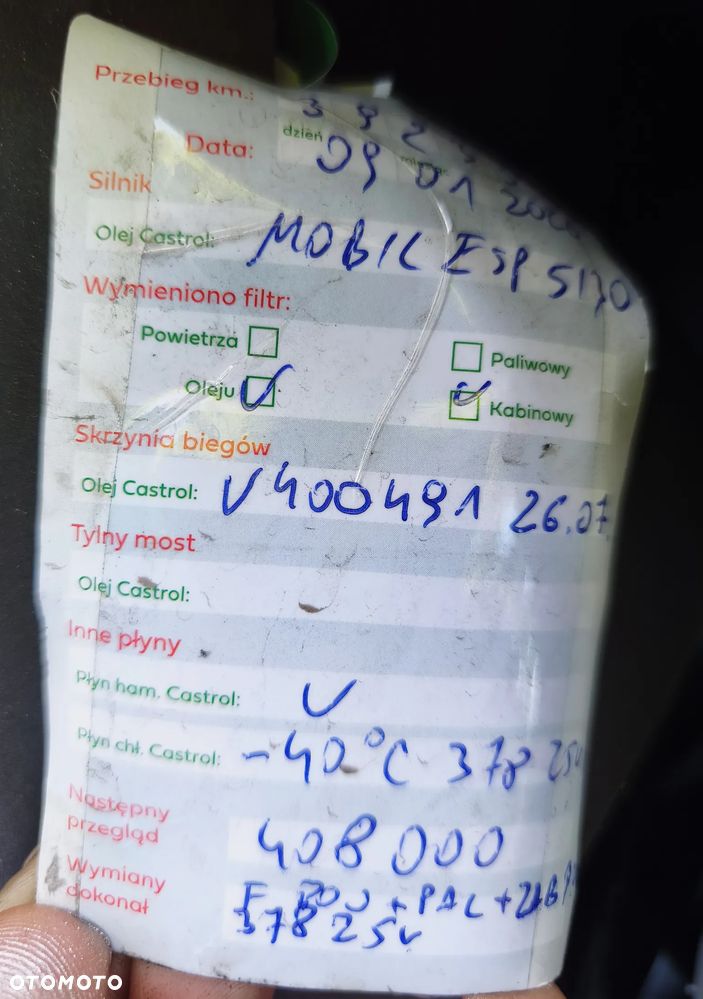 Przebieg km.: 392
dzień
Data: 09 01
Silnik
Olej Castrol: MOBIL ESP 5W30
Wymieniono filtr:
Powietrza Paliwowy
Oleju Kabinowy
Skrzynia biegów
Olej Castrol: V 400491 26.07
Tylny most
Olej Castrol:
Inne płyny
Płyn ham. Castrol:
Płyn chł. Castrol: -40°C 378 25
Następny
przegląd 408 000
Wymiany
dokonał F + PAL +
378 25
OTOMOTO